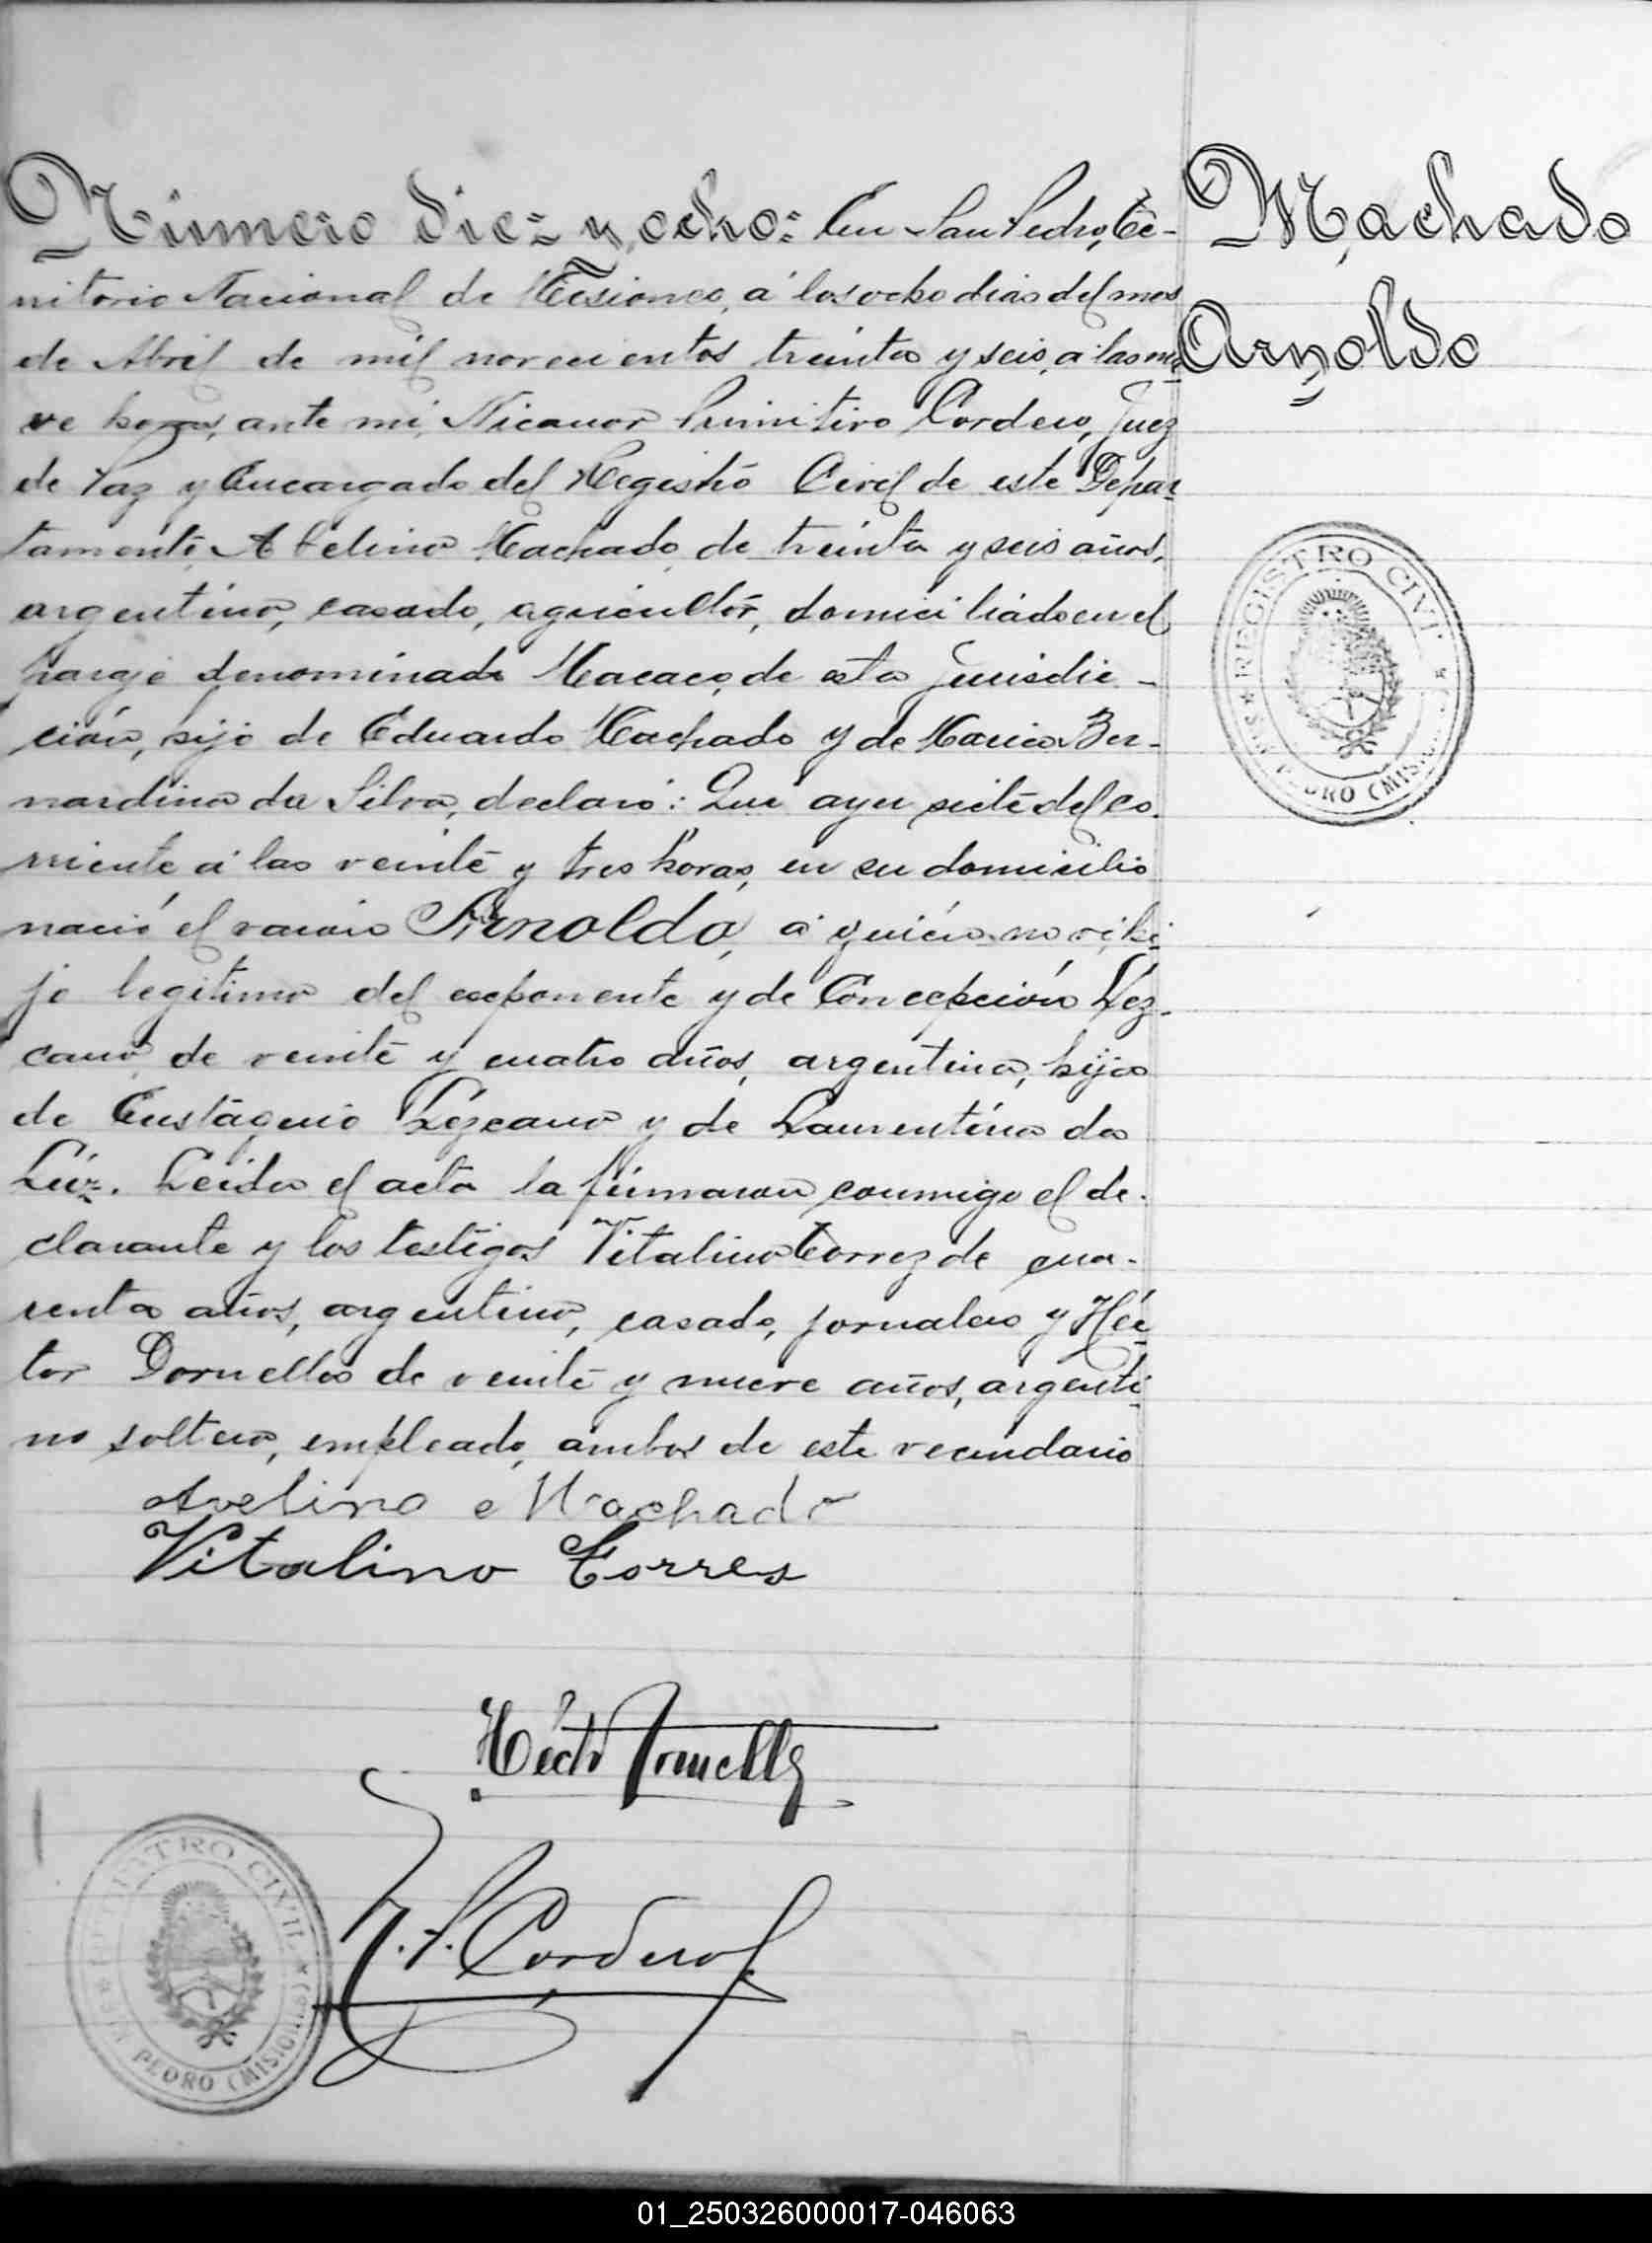 Número diez y ocho: En San Pedro, Te-
rritorio Nacional de Misiones, a los ocho dias del mes
de Abril de mil novecientos treinta y seis, a las nue
ve horas, ante mi, Nicanor Primitivo Cordero, Juez
de Paz y Encargado del Registro Civil de este Depar
tamento, Abelino Machado, de treinta y seis años,
argentino, casado, agricultor, domiciliado en el
paraje denominado Macaco, de esta jurisdic-
ción, hijo de Eduardo Machado y de Maria Ber-
nardina da Silva, declaró: Que ayer siete del co-
rriente a las veinte y tres horas, en su domicilio
nació el varón Arnoldo, a quién no ví, hi
jo legitimo del exponente y de Concepción Léz-
cano de veinte y cuatro años, argentina, hija
de Eustáquio Lézcano y de Laurentina da
Lúz. Leida el acta la firmaron conmigo el de-
clarante y los testigos Vitalino Torrez de cua-
renta años, argentino, casado, jornalero y Héc
tor Dornelles de veinte y nueve años, argenti
no soltero, empleado, ambos de este vecindario
Avelino e Machado
Vitalino Torres
Héctor Dornelles
N. P. Cordero
Machado
Arnoldo
REGISTRO CIVIL
SAN PEDRO (MISIONES)
REGISTRO CIVIL
SAN PEDRO (MISIONES)
01_250326000017-046063